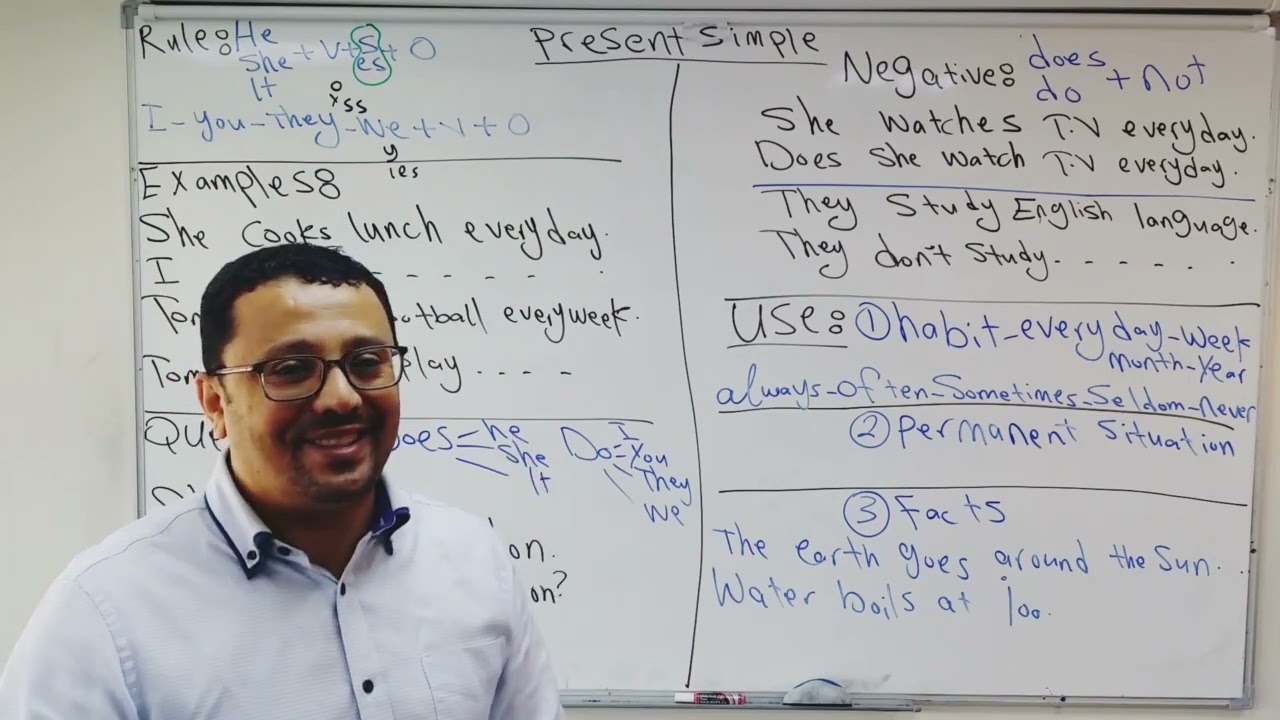 Present Simple
Rule: He
She + V + s + O
es
It
o
x ss
I - you - They - We + V + O
y
ies
Examples:
She cooks lunch everyday.
I - - - - .
Tom otball everyweek.
Tom play . . . .
Que oes he
she
It
Do = I
You
They
We
on.
on?
Negative: does
do + not
She watches T.V everyday.
Does she watch T.V everyday.
They study English language.
They don't study. - - - - .
Use: ① habit - everyday - week
month - Year
always - Often - Sometimes - Seldom - never
② Permanent Situation
③ Facts
The earth goes around the Sun.
Water boils at 100.